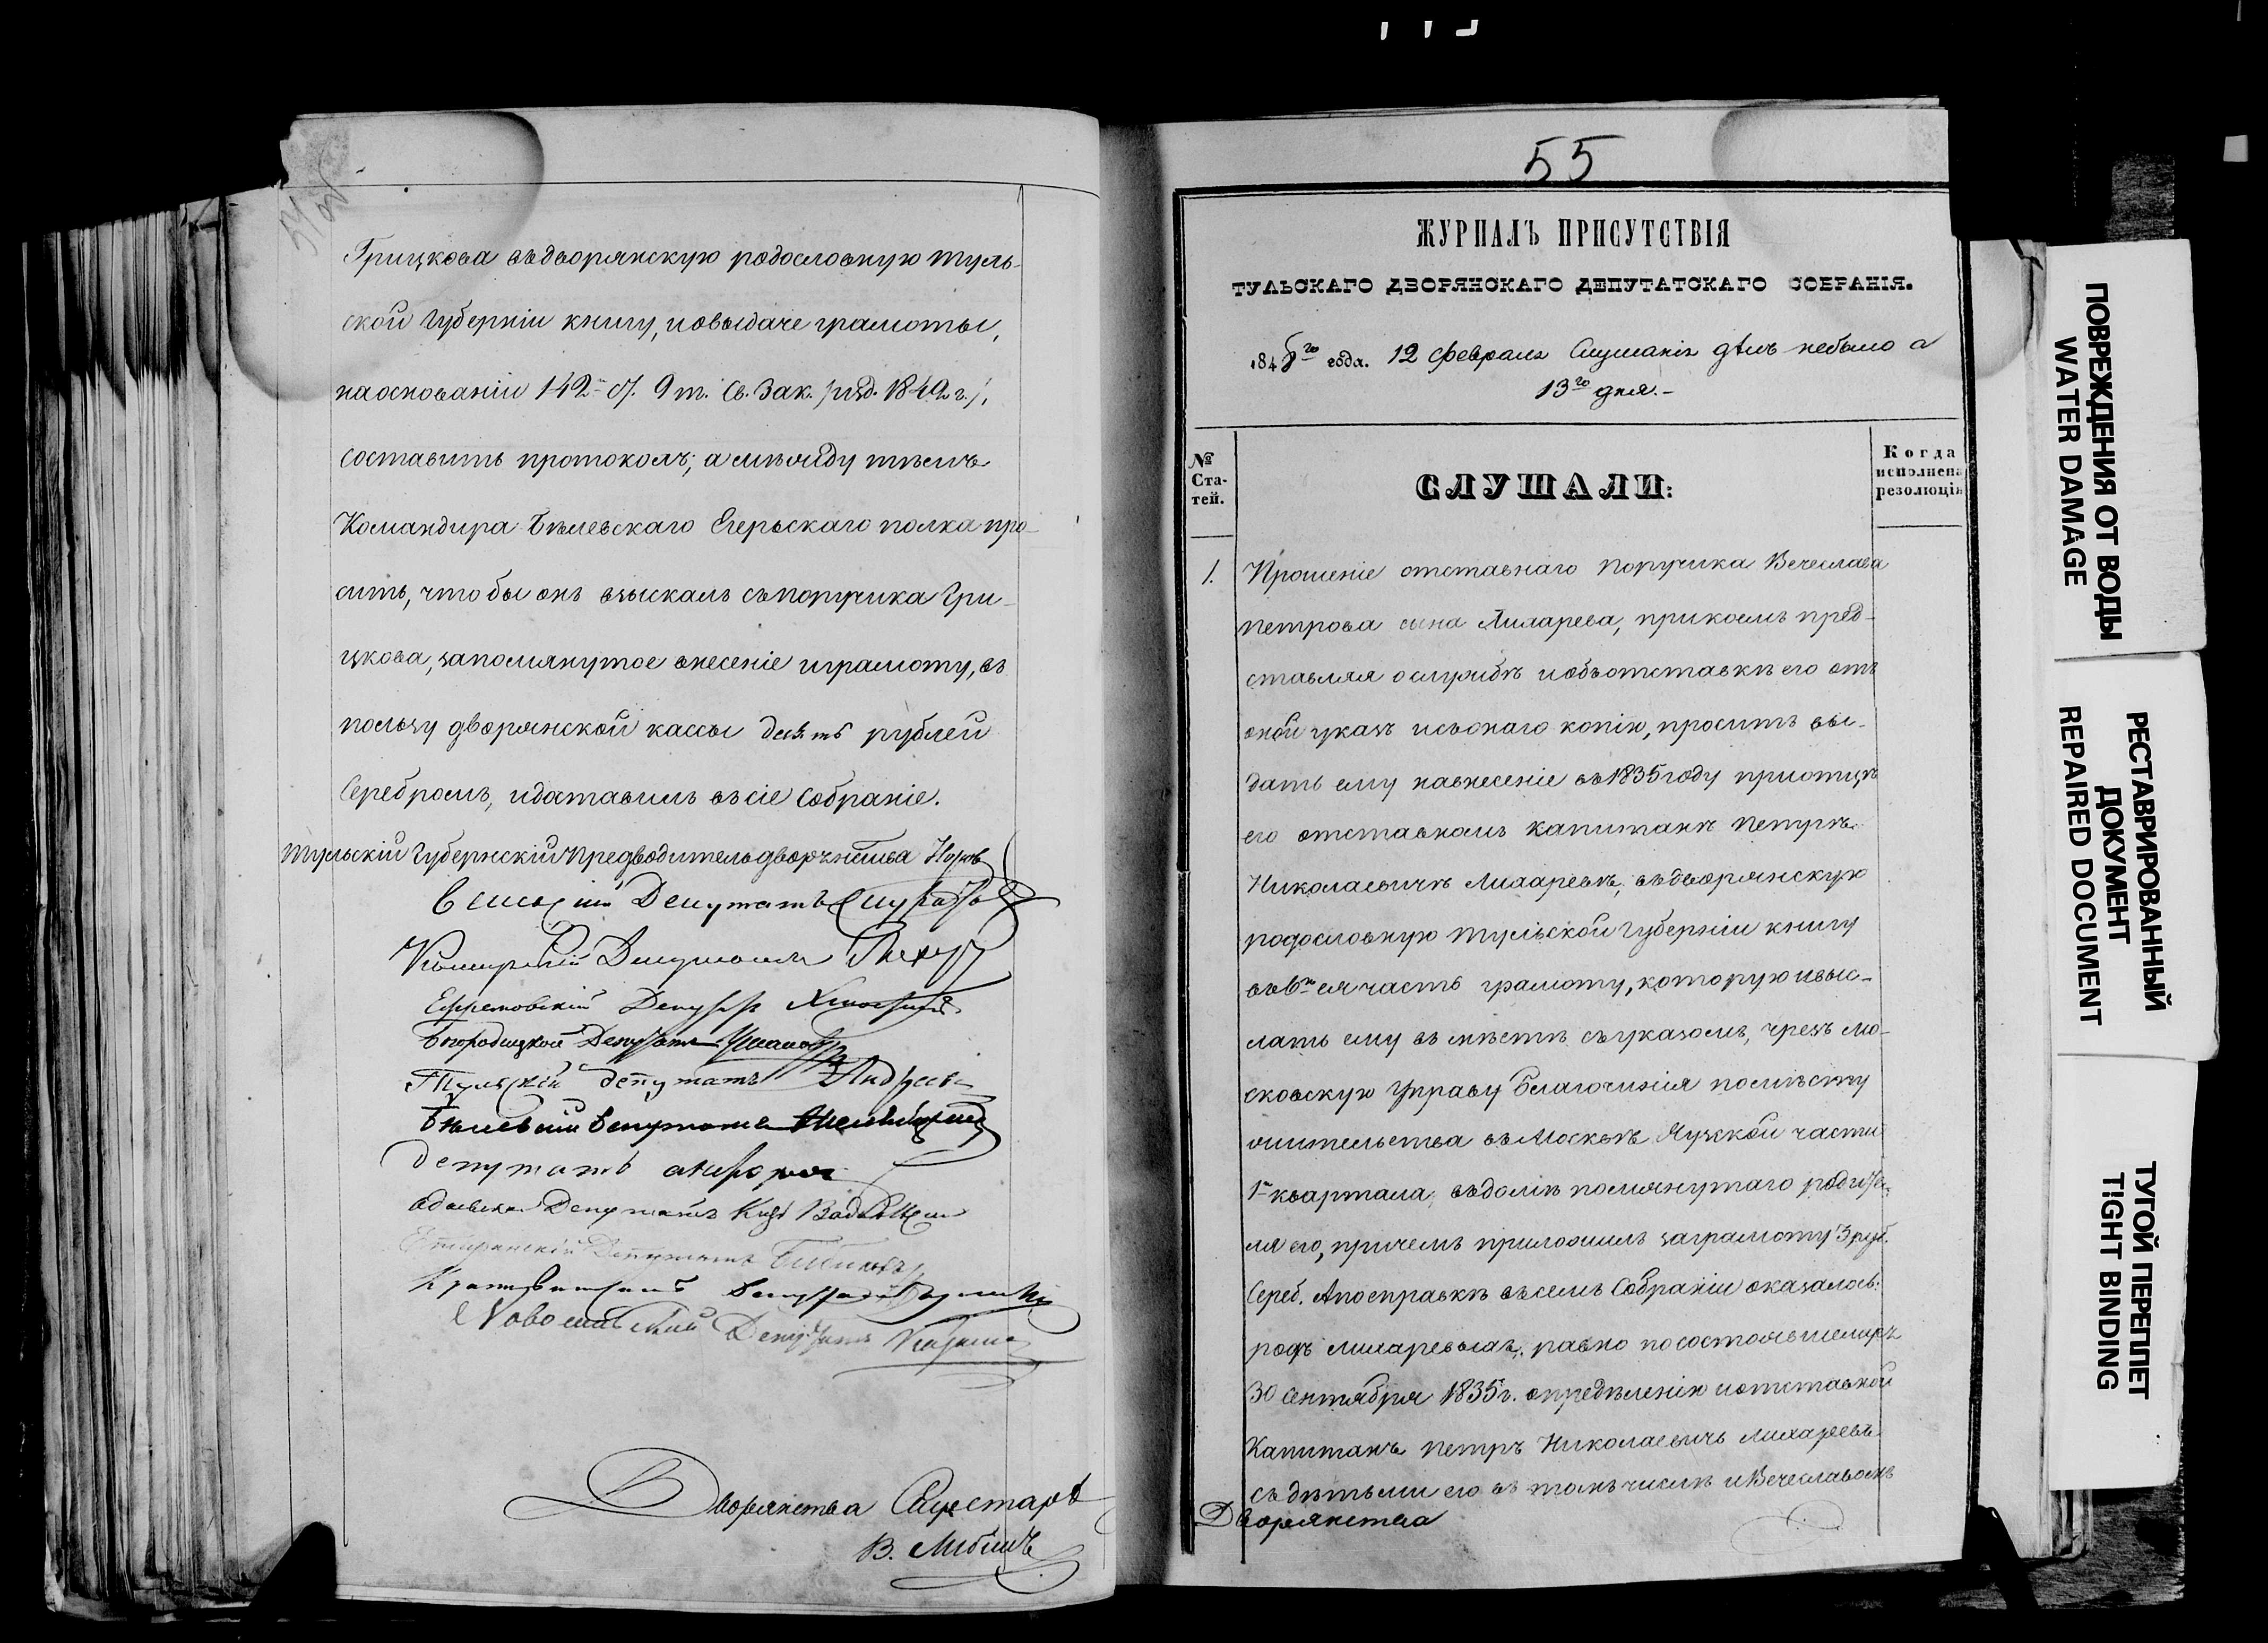 54 об
Грицкова въ дворянскую родословную туль-
ской Губерніи книгу, и о выдаче грамоты,
на основаніи 142й ст. 9 т. Св. Зак. /изд. 1842 г./,
составить протоколъ; а между тѣмъ
Командира Бѣлевскаго Егерьскаго полка про-
сить, что бы онъ взыскалъ съ поручика Гри-
цкова, за помянутое внесеніе и грамоту, въ
пользу дворянской кассы десять рублей
Серебромъ, и доставилъ въ сіе Собраніе.
Тульскій Губернскій Предводитель дворянства
Депутатъ
Каширскій Депутатъ
Ефремовскій Депутатъ
Богородицкой Депутатъ
Тульскій депутатъ Андреевъ
Бѣлевскій Депутатъ
депутатъ
Одоевскій Депутатъ Князь
Епифанскій Депутатъ
Крапивенскій Депутатъ
Новосильскій Депутатъ
Дворянства Секретарь
В.
55
ЖУРНАЛЪ ПРИСУТСТВІЯ
ТУЛЬСКАГО ДВОРЯНСКАГО ДЕПУТАТСКАГО СОБРАНІЯ.
184 го года. 12 февраля Слушанія дѣлъ небыло а
13го дня.-
№ Ста-тей.
СЛУШАЛИ:
Когда исполнена резолюція
1. Прошеніе отставнаго поручика Вечеслава
Петрова сына Лихарева, при коемъ пред-
ставляя о службѣ и объ отставкѣ его отъ
оной указъ и съ онаго копію, проситъ вы-
дать ему на внесеніе въ 1835 году при отцѣ
его отставномъ капитанѣ Петрѣ
Николаевичѣ Лихаревѣ, въ дворянскую
родословную тульской Губерніи книгу
въ 6ю ея часть грамоту, которую и выс-
лать ему въ мѣстѣ съ указомъ, чрезъ мо-
сковскую Управу Благочинія по мѣсту
жительства въ Москвѣ Яузской части
1го квартала, въ домѣ помянутаго родите-
ля его, причемъ приложилъ за грамоту 3 руб.
Сереб. А по справкѣ въ семъ Собраніи оказалось:
родъ Лихаревыхъ, равно по состоявшемуся
30 Сентября 1835 г. опредѣленію и отставной
Капитанъ Петръ Николаевичъ Лихаревъ
съ дѣтьми его въ томъ числѣ и Вечеславомъ
Дворянства
ПОВРЕЖДЕНИЯ ОТ ВОДЫ
WATER DAMAGE
РЕСТАВРИРОВАННЫЙ
ДОКУМЕНТ
REPAIRED DOCUMENT
ТУГОЙ ПЕРЕПЛЕТ
TIGHT BINDING